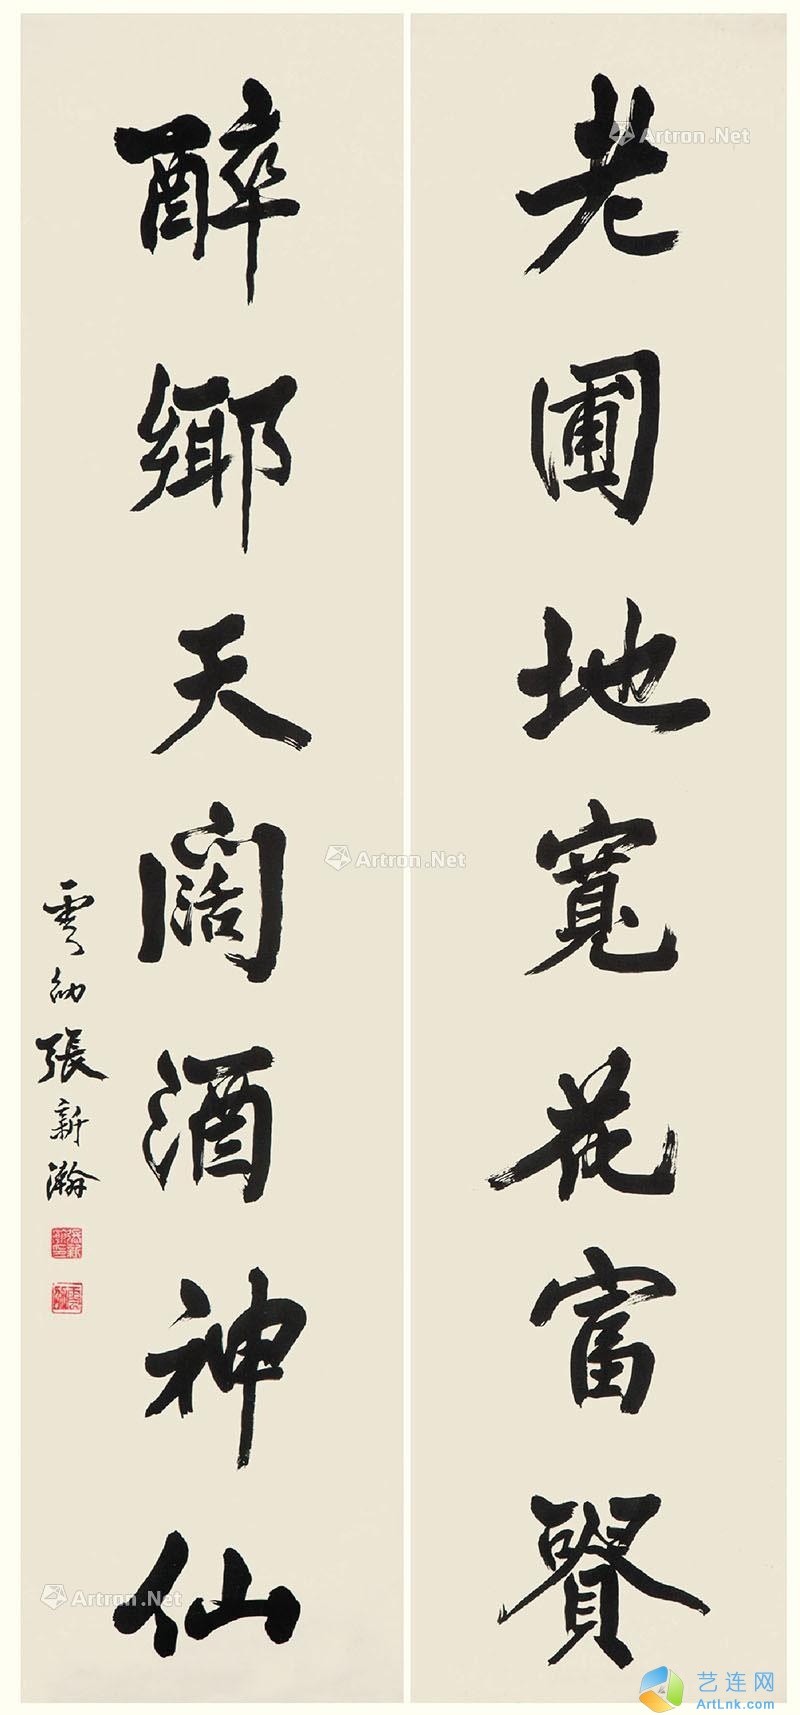 老圃地寬花富賢
醉鄉天闊酒神仙
雲幼張新瀚
Artron.Net
Artron.Net
Artron.Net
艺连网
ArtLnk.com